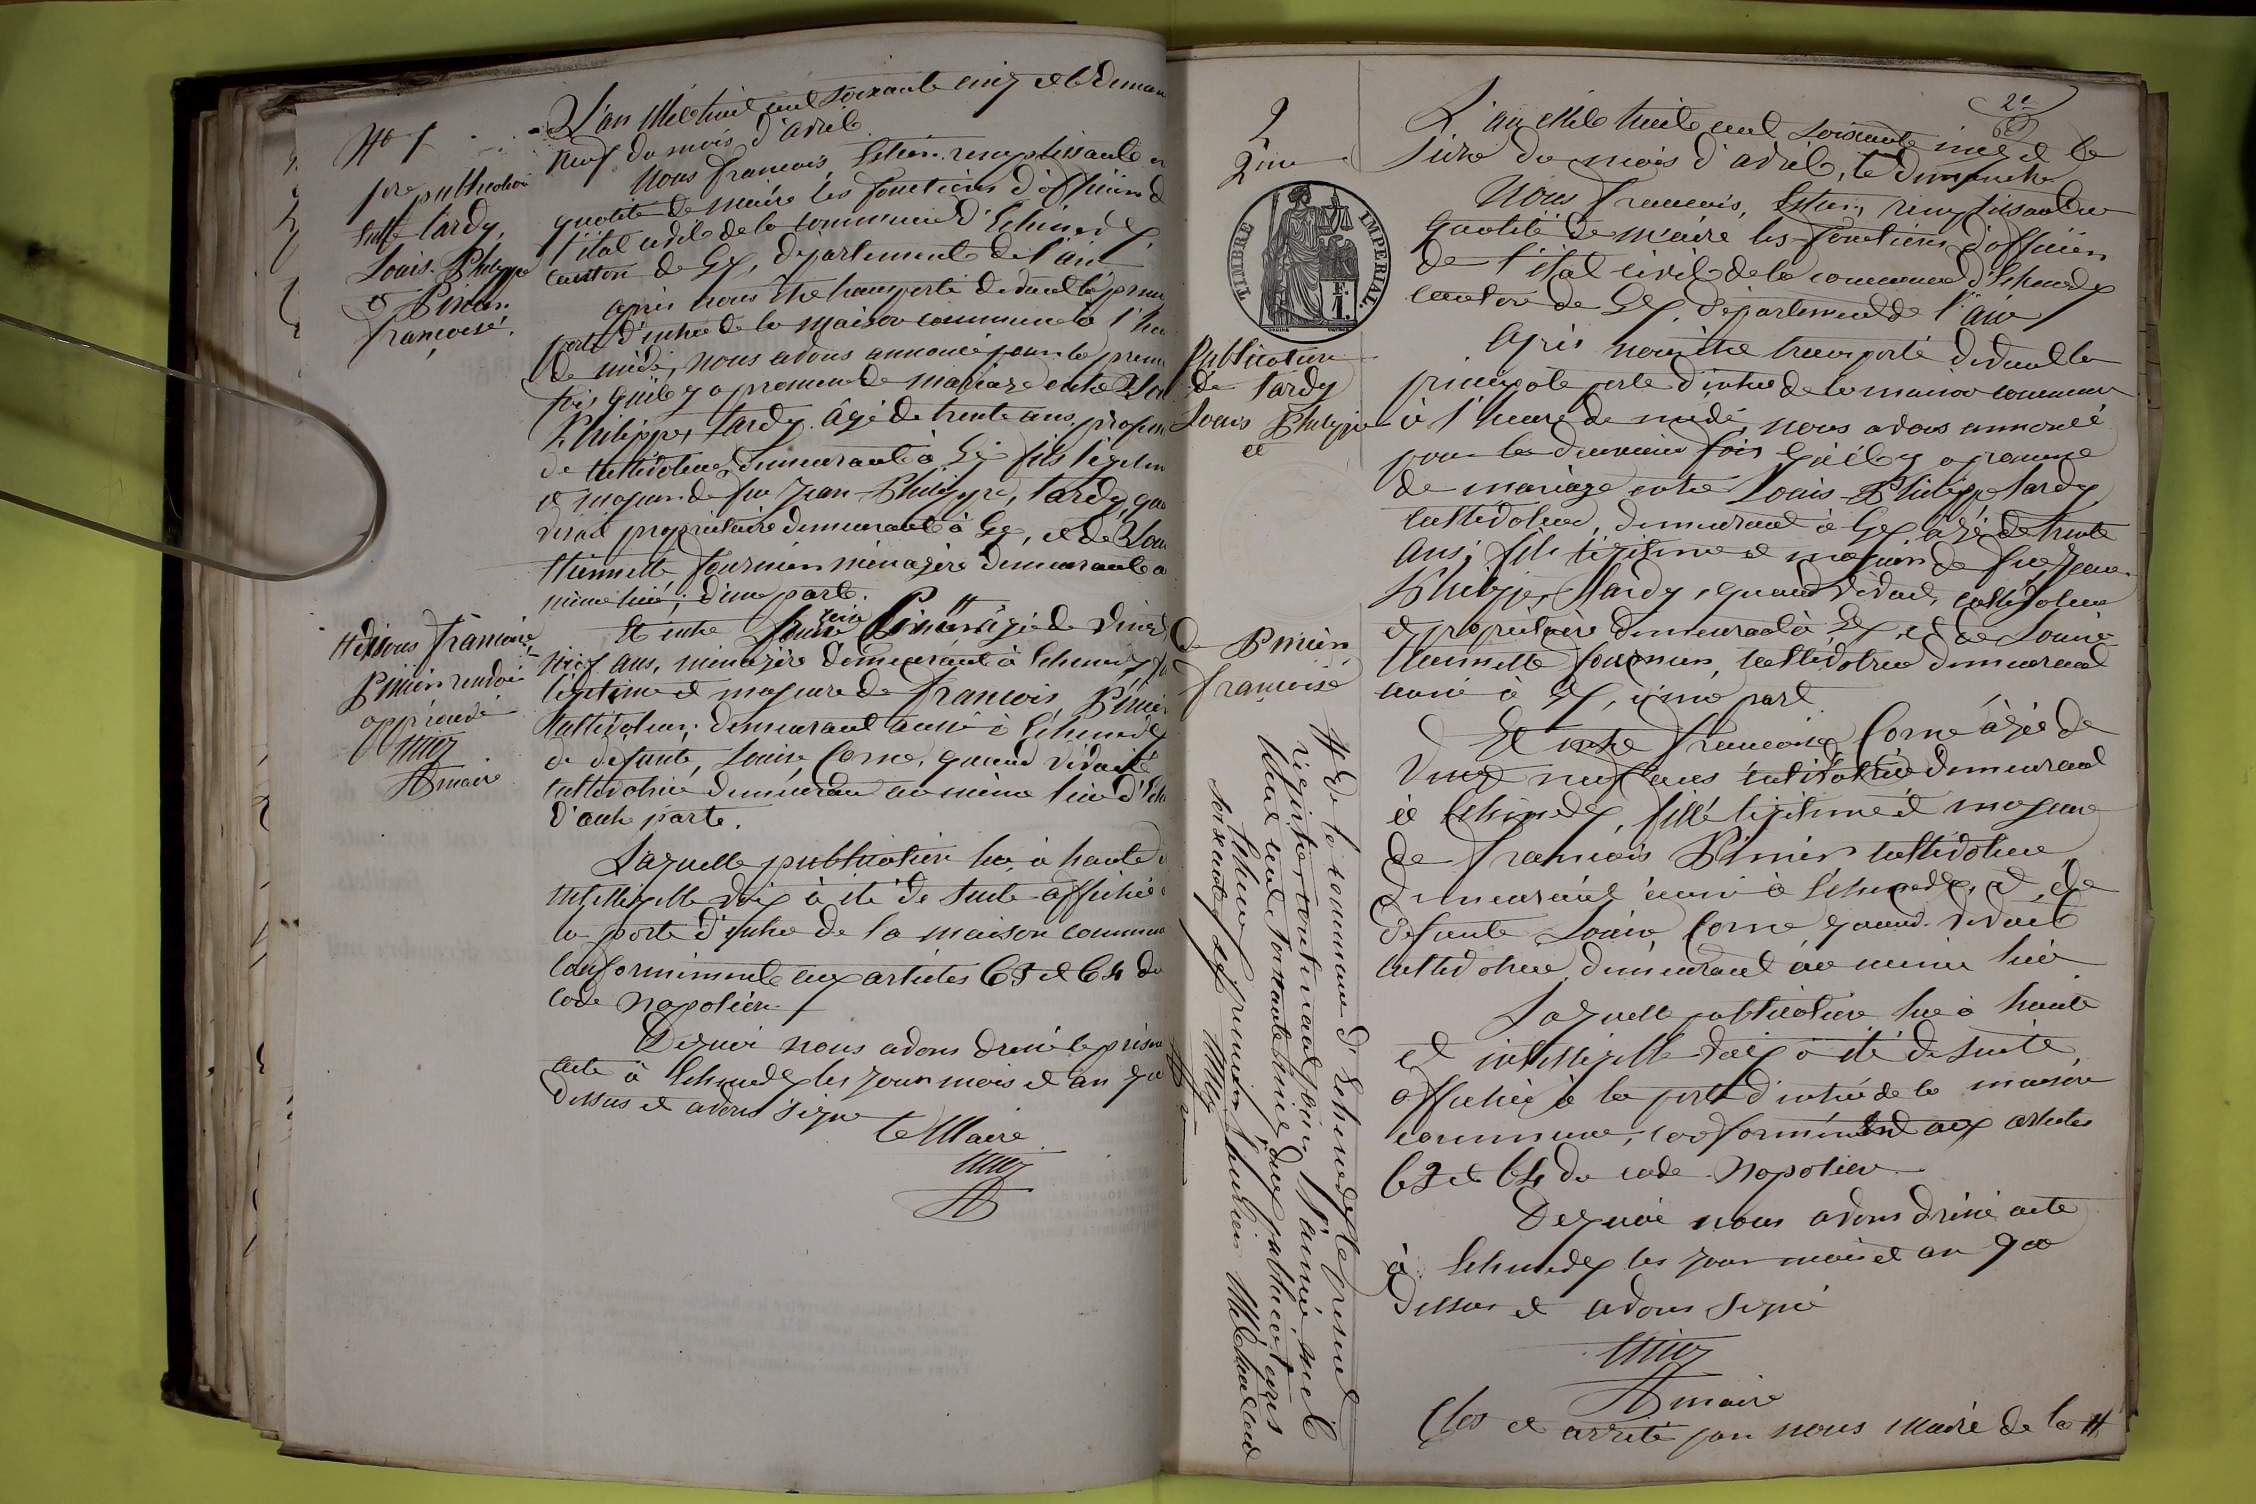 N° 1
1re publication
entre tardy,
Louis Philippe
et Pinier
françoise.
L'an Mil huit cent soixante cinq et le diman
neuf du mois d'avril.
Nous françois remplissant en
qualité de maire les fonctions d'officier d
l'état civil de la commune d'Echenevex,
canton de Gex, département de l'ain
après nous être transporté devant la prin
porte d'entrée de la maison commune à l'heu
de midi, nous avons annoncé pour la premi
fois qu'il y a promesse de mariage entre Lou
Philippe, tardy. âgé de trente ans, profess
de cultivateur, demeurant à Gex fils légitim
et majeur de feu Jean-Philippe, tardy, qua
vivait propriétaire demeurant à Gex, et de Loui
ménagère demeurant a
même lieu; d'une part.
Et entre âgée de vingt
neuf ans, ménagère demeurant à Echenevex fi
légitime et majeure de françois, Pinier
cultivateur; demeurant aussi à Echenevex
et défunte, Louise Corne, quand vivait
cultivatrice demeurant au même lieu d'Ech
d'autre parte.
# disons françoise,
Pinier renvoi
approuvé
maire
Laquelle publication lue, à haute e
intelligelle voix à été de suite affichée à
la porte d'entrée de la maison commun
conformément aux articles 63 et 64 du
code Napoléon
De quoi nous avons dressé le présen
acte à Echenevex les jour mois et an que
dessus et avons signé
Le Maire
2
2me
TIMBRE IMPERIAL
F.
1.
Publication
de tardy
Louis Philippe
et
de Pinier,
françoise
2e
L'an Mile huit cent soixante cinq et le
seize du mois d'avril, le dimanche
Nous françois, remplissant en
qualité de maire les fonctions d'officier
de l'état civil de la commune d'Echenevex
canton de Gex, département de l'ain
Après nous être transporté devant la
principale porte d'entrée de la maison commune
à l'heure de midi, nous avons annoncé
pour la deuxième fois qu'il y a promesse
de mariage entre Louis Philippe tardy
cultivateur, demeurant à Gex âgé de trente
ans; fils légitime et majeur de feu Jean-
Philippe, tardy, quand vivait, cultivateur
et propriétaire demeurant à Gex, et de Louise
cultivatrice demeurant
aussi à Gex, d'une part
Et entre françoise Corne âgée de
vingt neuf ans cultivatrice demeurant
à Echenevex, fille légitime et majeure
de françois Pinier cultivateur
demeurant aussi à Echenevex, et de
défunte Louise Corne quand vivait
cultivatrice, demeurant au même lieu
Laquelle publication lue à haute
et intelligelle voix à été de suite,
affichée à la porte d'entrée de la maison
commune, conformément aux articles
63 et 64 du code Napoléon
De quoi nous avons dressé acte
à Echenevex les jour mois et an que
dessus et avons signé
maire
Clos et arrêté par nous maire de la #
# de la commune d'Echenevex le présent
registre, contenant pour l'année mil
huit cent soixante cinq deux publications
Echenevex premier Mil huit cent
soixante six